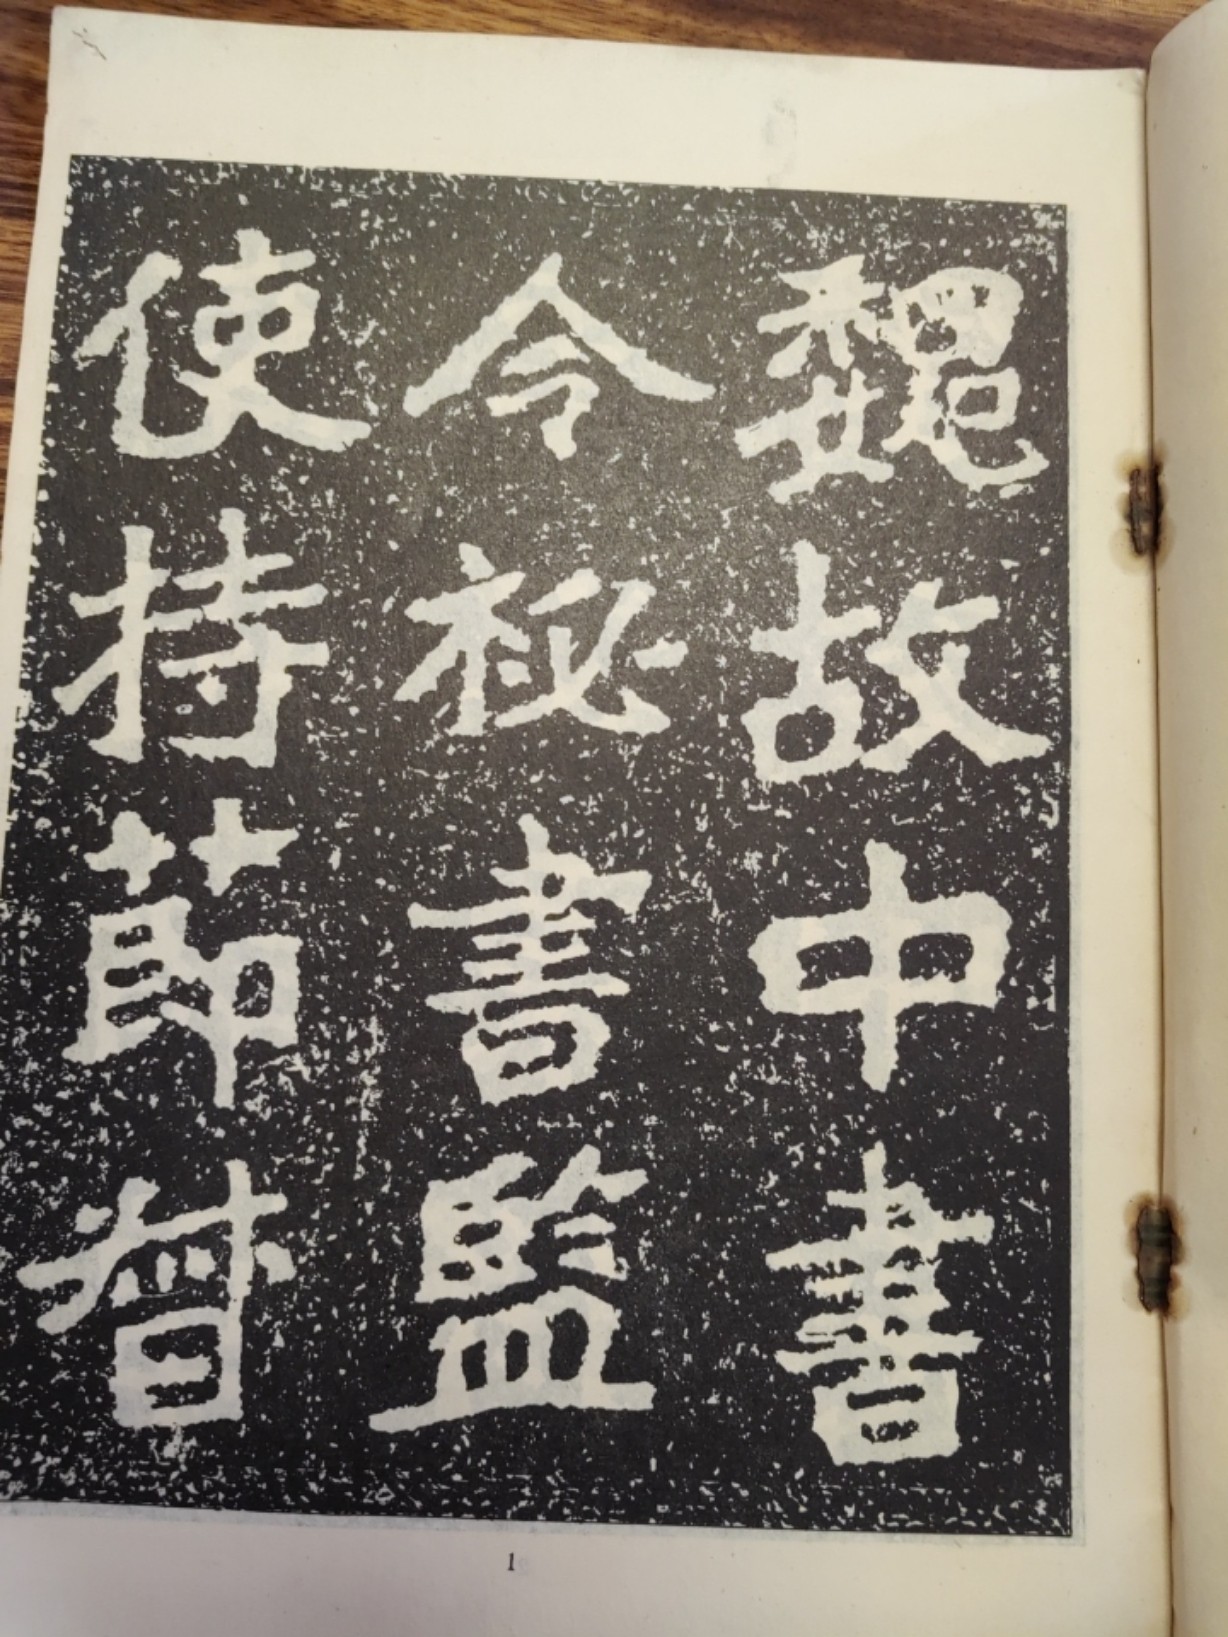 魏故中書
令祕書監
使持節督
1